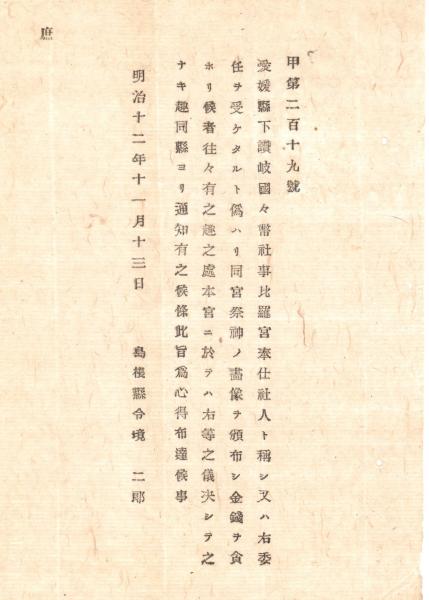 甲第二百十九號
愛媛縣下讃岐國々幣社事比羅宮奉仕社人ト稱シ又ハ右委
任ヲ受ケタルト僞ハリ同宮祭神ノ畵像ヲ頒布シ金錢ヲ貪
ホリ候者往々有之趣之處本宮ニ於テハ右等之儀决シテ之
ナキ趣同縣ヨリ通知有之候條此旨爲心得布達候事
明治十二年十一月十三日 島根縣令境 二郎
庶